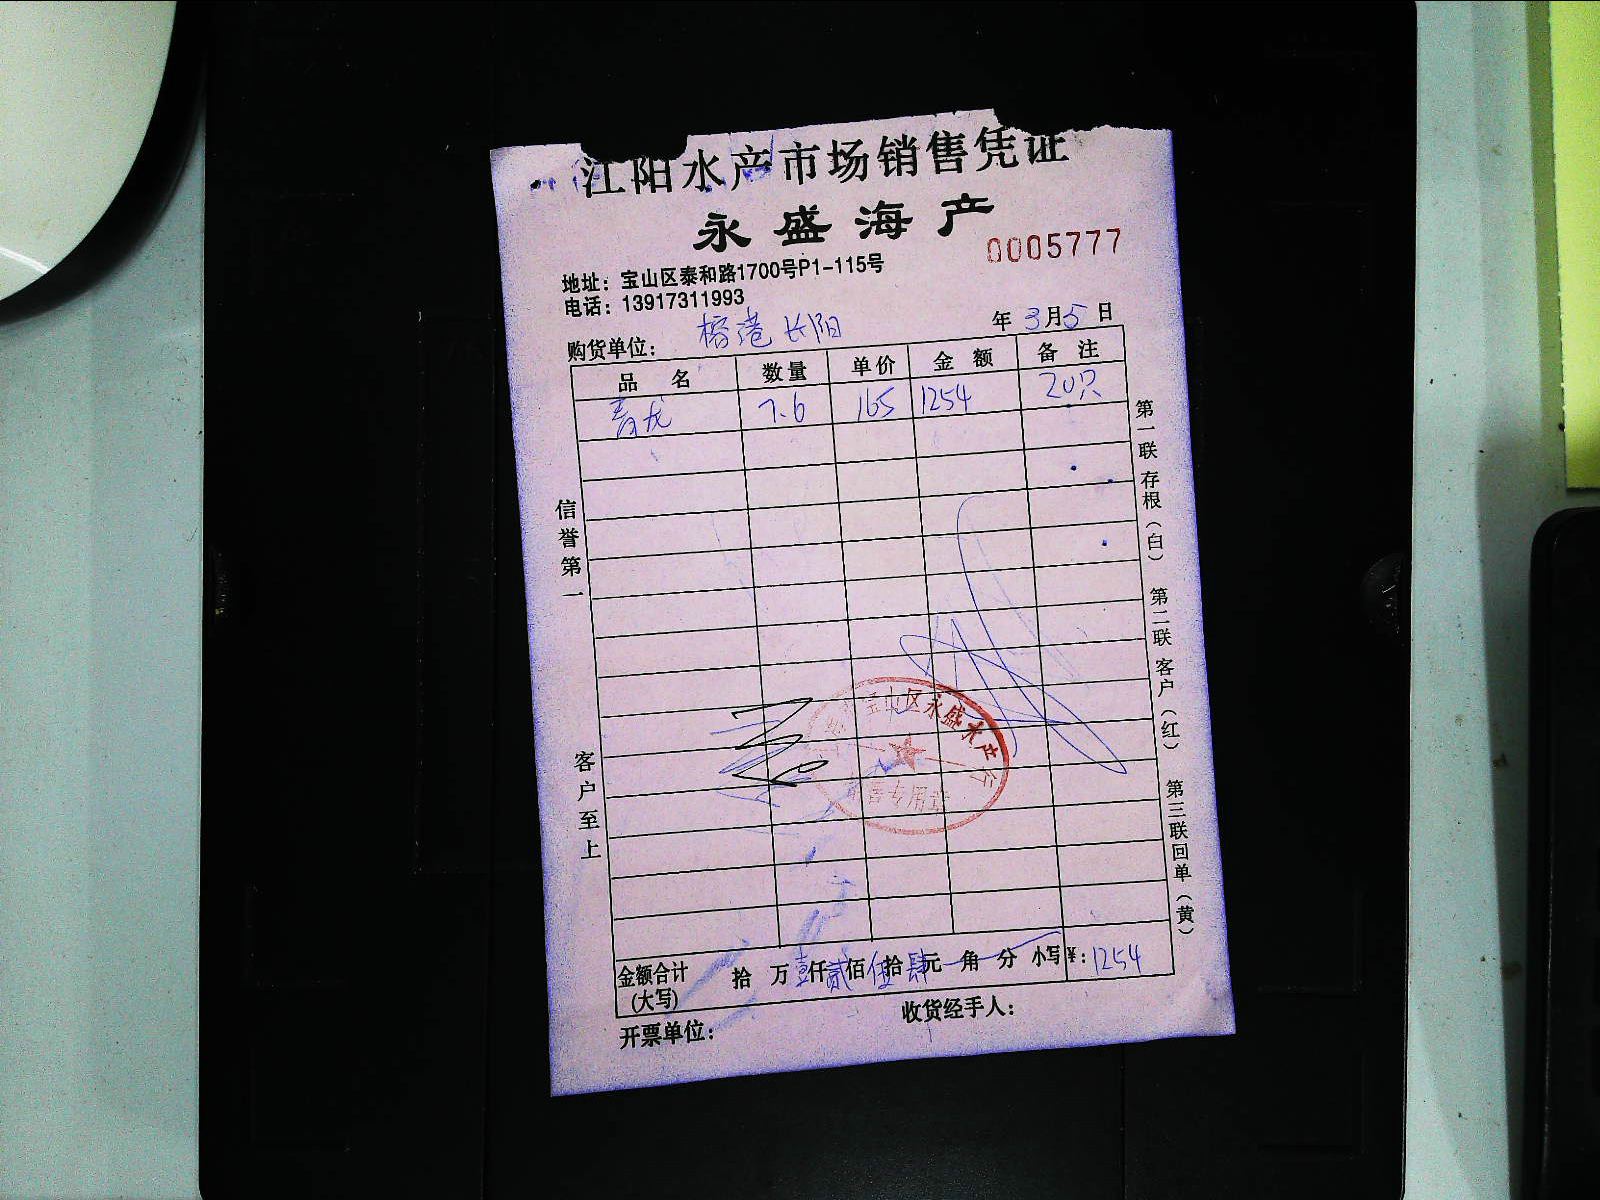 江阳水产市场销售凭证
永盛海产
0005777
地址：宝山区泰和路1700号P1-115号
电话：13917311993
购货单位： 榕港长阳 年 3月5日
品名 数量 单价 金额 备注
青龙 7.6 165 1254 20只
信誉第一 客户至上
第一联 存根（白） 第二联 客户（红） 第三联 回单（黄）
宝山区永盛水产行
专用章
金额合计 拾 万壹仟贰佰伍拾肆元 角 分 小写¥：1254
（大写）
开票单位： 收货经手人：